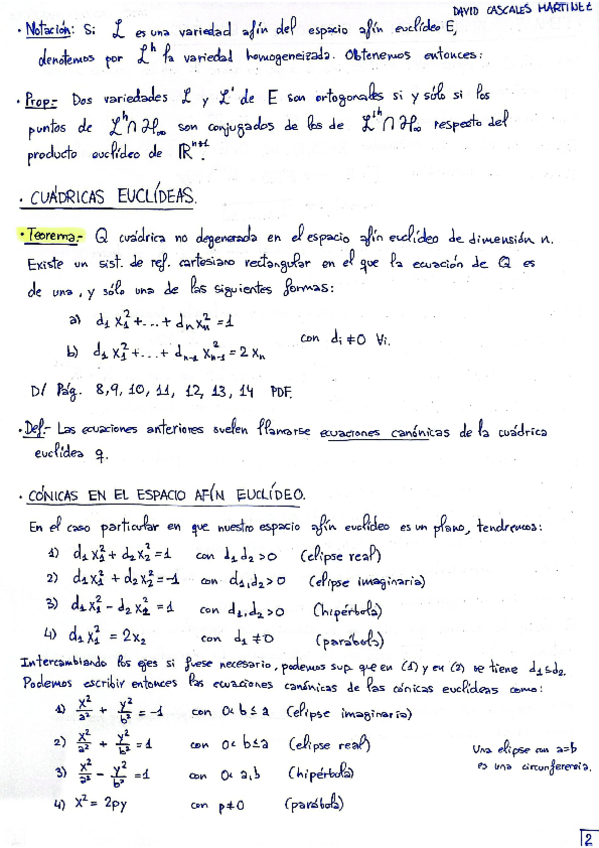 DAVID CASCALES MARTINEZ
· Notación: Si L es una variedad afín del espacio afín euclídeo E,
denotemos por L^h la variedad homogeneizada. Obtenemos entonces:
· Prop:- Dos variedades L y L' de E son ortogonales si y sólo si los
puntos de L^h ∩ H∞ son conjugados de los de L'^h ∩ H∞ respecto del
producto euclídeo de R^{n+1}.
· CUÁDRICAS EUCLÍDEAS.
· Teorema:- Q cuádrica no degenerada en el espacio afín euclídeo de dimensión n.
Existe un sist. de ref. cartesiano rectangular en el que la ecuación de Q es
de una, y sólo una de las siguientes formas:
a) d₁x₁² + ... + dₙxₙ² = 1
b) d₁x₁² + ... + dₙ₋₁xₙ₋₁² = 2xₙ
con dᵢ ≠ 0 ∀i.
D/ Pág. 8, 9, 10, 11, 12, 13, 14 PDF.
· Def:- Las ecuaciones anteriores suelen llamarse ecuaciones canónicas de la cuádrica
euclídea q.
· CÓNICAS EN EL ESPACIO AFÍN EUCLÍDEO.
En el caso particular en que nuestro espacio afín euclídeo es un plano, tendremos:
1) d₁x₁² + d₂x₂² = 1 con d₁d₂ > 0 (elipse real)
2) d₁x₁² + d₂x₂² = -1 con d₁,d₂ > 0 (elipse imaginaria)
3) d₁x₁² - d₂x₂² = 1 con d₁,d₂ > 0 (hipérbola)
4) d₁x₁² = 2x₂ con d₁ ≠ 0 (parábola)
Intercambiando los ejes si fuese necesario, podemos sup. que en (1) y en (2) se tiene d₁≤d₂.
Podemos escribir entonces las ecuaciones canónicas de las cónicas euclídeas como:
1) x²/a² + y²/b² = -1 con 0 < b ≤ a (elipse imaginaria)
2) x²/a² + y²/b² = 1 con 0 < b ≤ a (elipse real)
Una elipse con a=b
es una circunferencia.
3) x²/a² - y²/b² = 1 con 0 < a,b (hipérbola)
4) x² = 2py con p ≠ 0 (parábola)
2